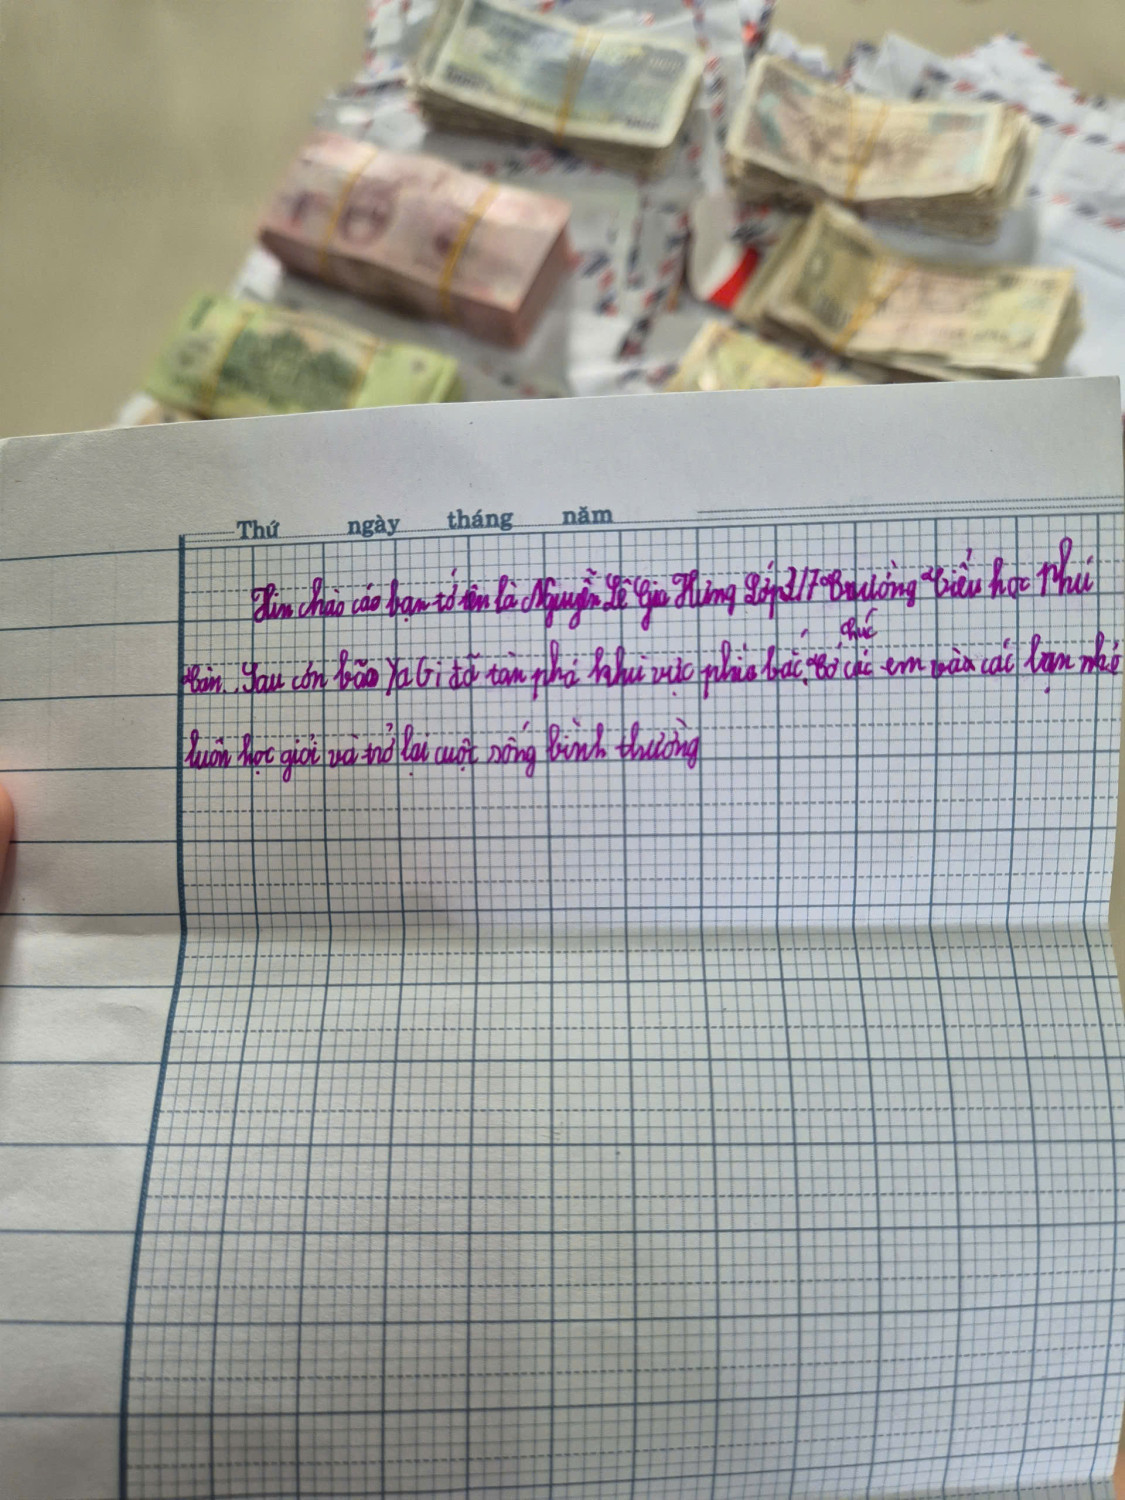 Thứ ngày tháng năm
Xin chào các bạn tớ tên là Nguyễn Lê Gia Hưng Lớp 2/7 Trường Tiểu học Phú
chúc
Tân. Sau cơn bão Ya Gi đã tàn phá khu vực phía bắc, Tớ các em và các bạn nhỏ
luôn học giỏi và trở lại cuột sống bình thường